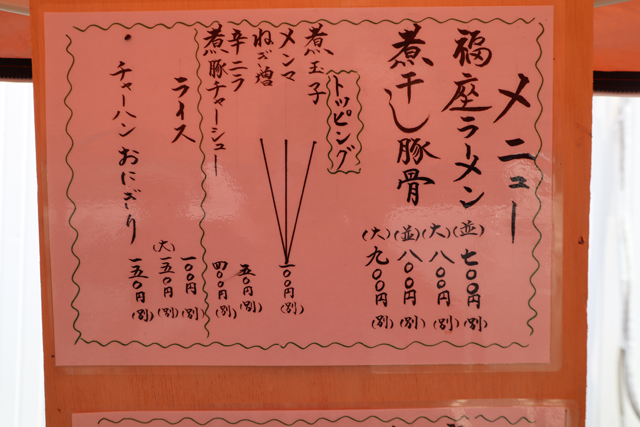 メニュー
福座ラーメン
(並) 七〇〇円 (別)
(大) 八〇〇円 (別)
煮干し豚骨
(並) 八〇〇円 (別)
(大) 九〇〇円 (別)
トッピング
煮玉子
メンマ
ねぎ増
一〇〇円 (別)
辛ニラ
五〇円 (別)
煮豚チャーシュー
四〇〇円 (別)
ライス
一〇〇円 (別)
(大) 一五〇円 (別)
・チャーハンおにぎり
一五〇円 (別)